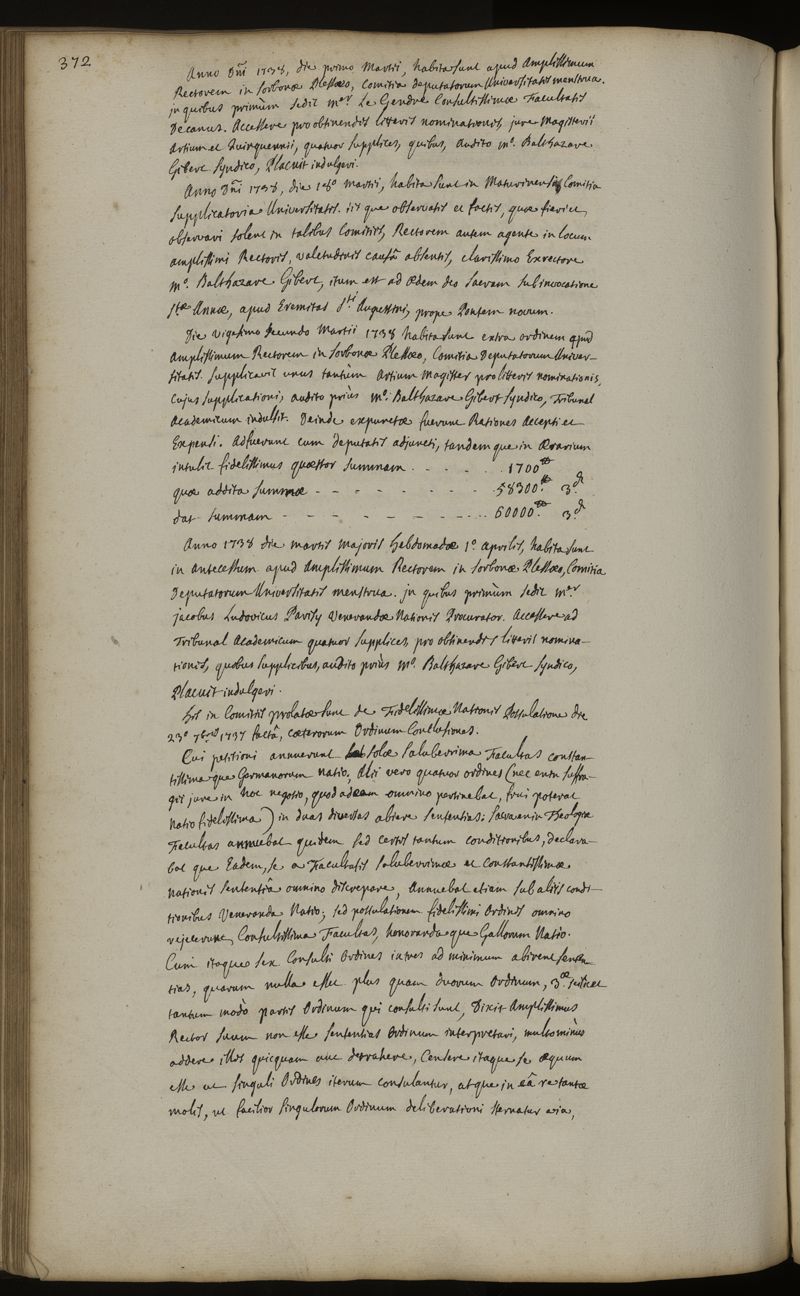 372
Anno Dni 1738, die primo Martii, habita sunt apud Amplissimum
Rectorem in Sorbonæ Plessæo, Comitia Deputatorum Universitatis menstrua.
in quibus primùm sedit mer Le Gendre Consultissimæ Facultatis
Decanus. Accessere pro obtinendis litteris nominationis, jure Magisterii
Artium et Quinquennii, quatuor supplices, quibus, audito mo. Balthazare
Gibert Syndico, Placuit indulgeri.
Anno Dni 1738, die 18o Martii, habita sunt in Maturinensib Comitia
Supplicatoria Universitatis. iis que observatis et factis, quæ fieri et
observari solent in talibus Comitiis, Rectorem autem agente in locum
amplissimi Rectoris, valetudinis causâ absentis, clarissimo Exrectore
mo. Balthazare Gibert, itum est ad Ædem deo sacram sub invocatione
stæ Annæ, apud Eremitas sti Augustini, prope Pontem novum.
Die vigesimo secundo Martii 1738 habita sunt extra ordinem apud
Amplissimum Rectorem in Sorbonæ Plessæo, Comitia Deputatorum Univer-
sitatis. Supplicavit unus tantùm Artium Magister pro litteris nominationis,
Cujus supplicationi, audito priùs mo. Balthazare Gibert Syndico, Tribunal
Academicum indulsit. Deinde expunctæ fuerunt Rationes Accepti et
Expensi. Adfuerunt cum deputatis adjuncti, tandem que in Ærarium
intulit fidelissimus quæstor summam . - . - . . 1700tt
quæ addita summæ - - - - - - - - 58300.tt 3.d
dat summam - - - - - - - - . . 60000tt. 3.d
Anno 1738 die martis majoris hebdomadæ 1o. Aprilis, habita sunt
in antecessum apud Amplissimum Rectorem in Sorbonæ Plessæo, Comitia
Deputatorum Universitatis menstrua. in quibus primùm sedit mer.
jacobus Ludovicus Parisy Venerandæ Nationis Procurator. Accessere ad
Tribunal Academicum quatuor supplices, pro obtinendis litteris nomina-
tionis, quibus supplicibus, audito priùs mo. Balthazare Gibert Syndico,
Placuit indulgeri.
His in Comitiis prolatæ sunt de Fidelissimæ Nationis Postulatione die
23o 7bris 1737 factâ, cæterorum Ordinum Conclusiones.
Cui petitioni annuerunt solæ Saluberrima Facultas constan-
tissima que Germanorum Natio, Alii vero quatuor ordines (nec enim suffra-
gii jure in hoc negotio, quod ad eam omnino pertinebat, frui poterat
Natio fidelissima) in duas diversas abiere sententias: Sacra enim Theologiæ
Facultas annuebat quidem sed certis tantum conditionibus, declara-
bat que Eadem, se a Facultatis Saluberrimæ et constantissimæ
Nationis sententiâ omnino discrepare, Annuebat etiam sub aliis condi-
tionibus Veneranda Natio; sed postulationem fidelissimi Ordinis omnino
rejecerunt, Consultissima Facultas, honoranda que Gallorum Natio.
Cum itaque sex Consulti Ordines in tres ad minimum abirent senten
tias, quarum nulla esset plus quam duorum Ordinum, 3æ scilicet
tantum modò partis Ordinum qui consulti sunt, Dixit Amplissimus
Rector suum non esse sententias Ordinum interpretari, multominùs
addere illis quicquam aut detrahere, Censere itaque se æquum
esse ut singuli Ordines iterum consulantur, atque in eâ re tantæ
molis, ut facilior singulorum Ordinum deliberationi sternatur via,